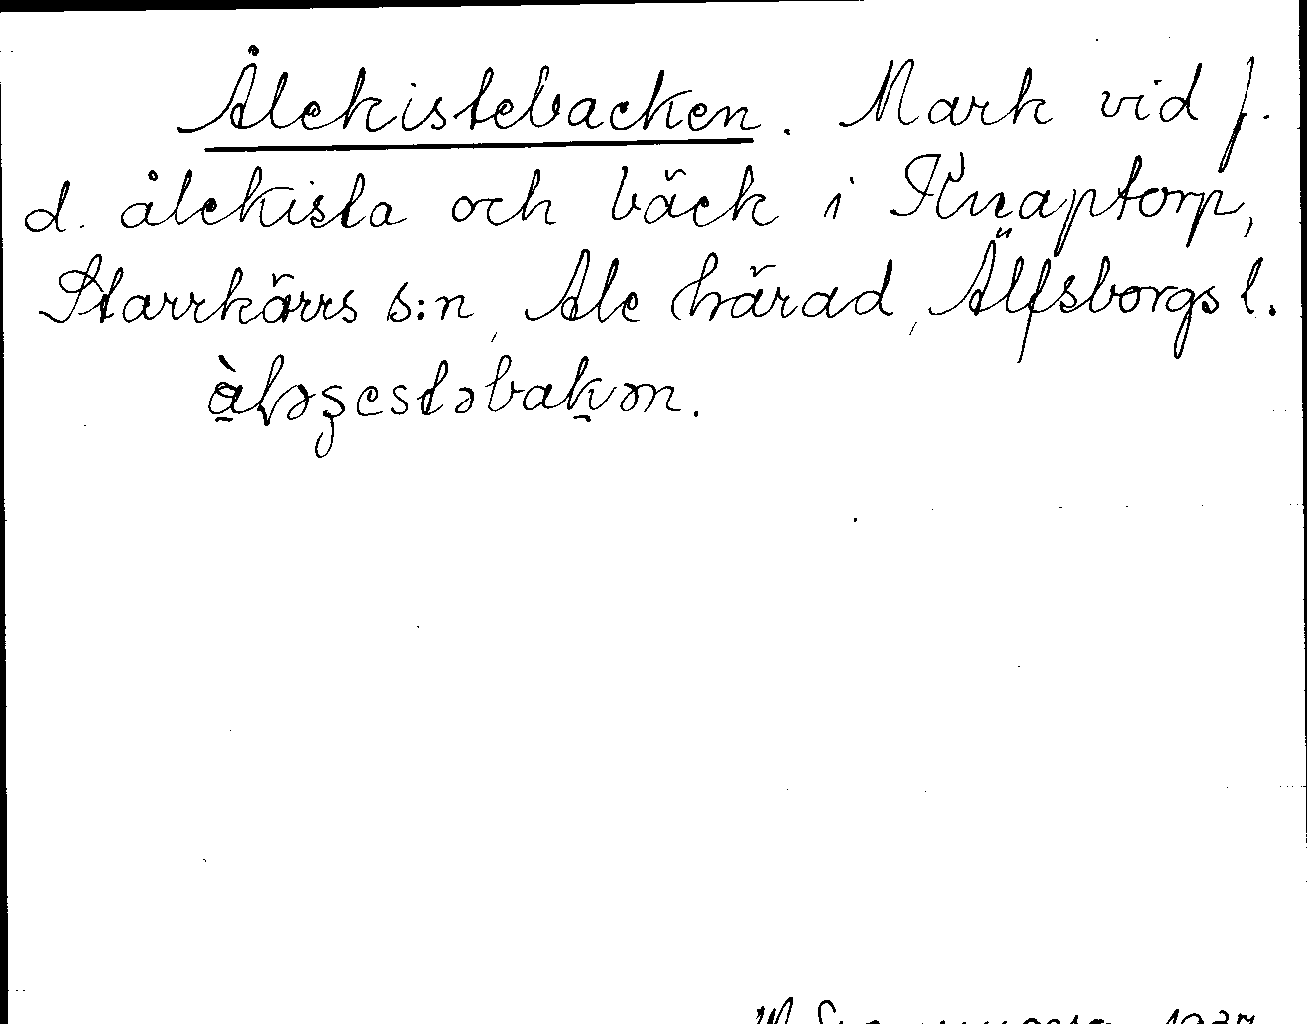 Ålekistebacken. Mark vid f.
d. ålekista och bäck i Knaptorp,
Starrkärrs s:n, Ale härad, Älfsborgs l.